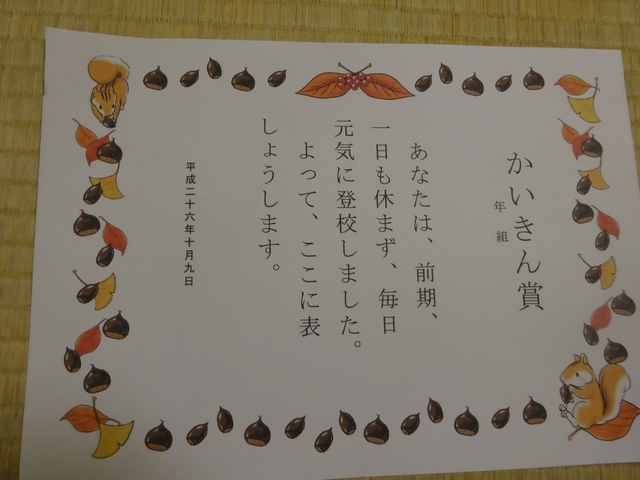 かいきん賞
年 組
あなたは、前期、
一日も休まず、毎日
元気に登校しました。
よって、ここに表
しょうします。
平成二十六年十月九日